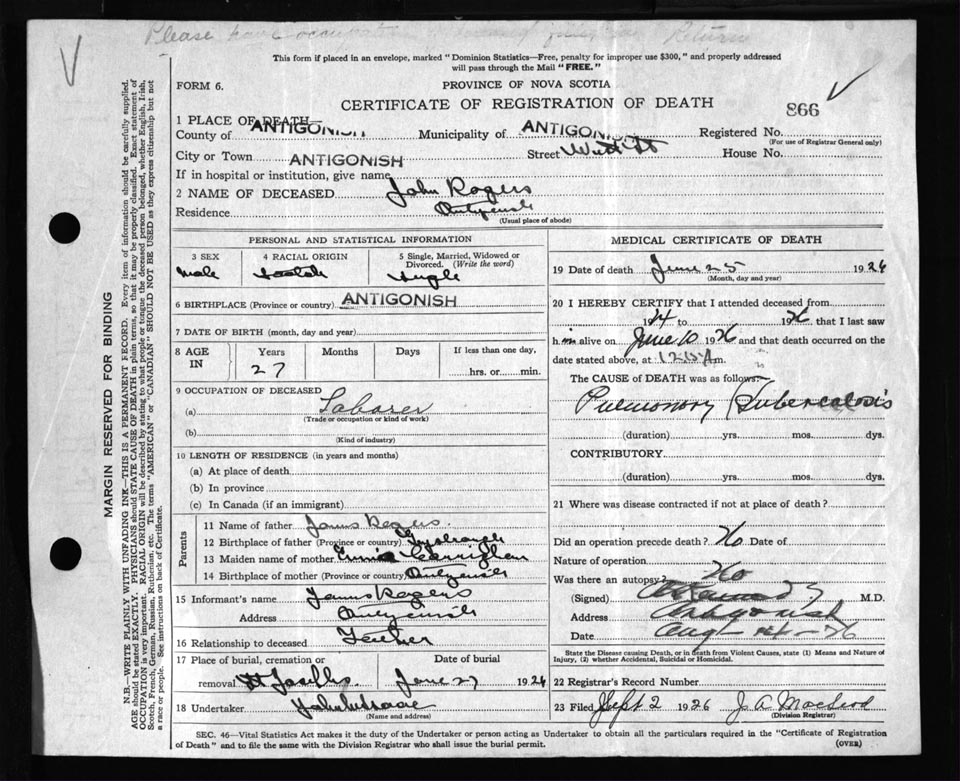 Please have occupation Return
This form if placed in an envelope, marked "Dominion Statistics—Free, penalty for improper use $300," and properly addressed
will pass through the Mail "FREE."
FORM 6.
PROVINCE OF NOVA SCOTIA
CERTIFICATE OF REGISTRATION OF DEATH
866
1 PLACE OF DEATH—
County of ANTIGONISH Municipality of ANTIGONISH Registered No.
(For use of Registrar General only)
City or Town ANTIGONISH Street House No.
If in hospital or institution, give name
2 NAME OF DECEASED John Rogers
Residence Antigonish
(Usual place of abode)
PERSONAL AND STATISTICAL INFORMATION
3 SEX 4 RACIAL ORIGIN 5 Single, Married, Widowed or
Divorced. (Write the word)
Male Single
6 BIRTHPLACE (Province or country) ANTIGONISH
7 DATE OF BIRTH (month, day and year)
8 AGE IN Years Months Days If less than one day,
27 hrs. or min.
9 OCCUPATION OF DECEASED
(a) Laborer
(Trade or occupation or kind of work)
(b)
(Kind of industry)
10 LENGTH OF RESIDENCE (in years and months)
(a) At place of death
(b) In province
(c) In Canada (if an immigrant)
Parents
11 Name of father James Rogers
12 Birthplace of father (Province or country)
13 Maiden name of mother
14 Birthplace of mother (Province or country) Antigonish
15 Informant's name James Rogers
Address Antigonish
16 Relationship to deceased Father
17 Place of burial, cremation or Date of burial
removal June 27 1926
18 Undertaker
(Name and address)
MEDICAL CERTIFICATE OF DEATH
19 Date of death June 25 1926
(Month, day and year)
20 I HEREBY CERTIFY that I attended deceased from
1924 to 1926 that I last saw
him alive on June 10 1926 and that death occurred on the
date stated above, at m.
The CAUSE of DEATH was as follows:
Pulmonary Tuberculosis
(duration) yrs. mos. dys.
CONTRIBUTORY
(duration) yrs. mos. dys.
21 Where was disease contracted if not at place of death?
Did an operation precede death? No Date of
Nature of operation
Was there an autopsy? No
(Signed) M.D.
Address Antigonish
Date
State the Disease causing Death, or in death from Violent Causes, state (1) Means and Nature of
Injury, (2) whether Accidental, Suicidal or Homicidal.
22 Registrar's Record Number
23 Filed Sept 2 1926 J. A. MacLeod
(Division Registrar)
SEC. 46—Vital Statistics Act makes it the duty of the Undertaker or person acting as Undertaker to obtain all the particulars required in the "Certificate of Registration
of Death" and to file the same with the Division Registrar who shall issue the burial permit.
(OVER)
MARGIN RESERVED FOR BINDING
N.B.—WRITE PLAINLY WITH UNFADING INK—THIS IS A PERMANENT RECORD. Every item of information should be carefully supplied.
AGE should be stated EXACTLY. PHYSICIANS should STATE CAUSE OF DEATH in plain terms, so that it may be properly classified. Exact statement of
OCCUPATION is very important. RACIAL ORIGIN will be described by stating to what people or tongue the deceased person belonged, whether English, Irish,
Scotch, French, German, Russian, Ruthenian, etc. The terms "AMERICAN" or "CANADIAN" SHOULD NOT BE USED as they express citizenship but not
a race or people. See instructions on back of Certificate.